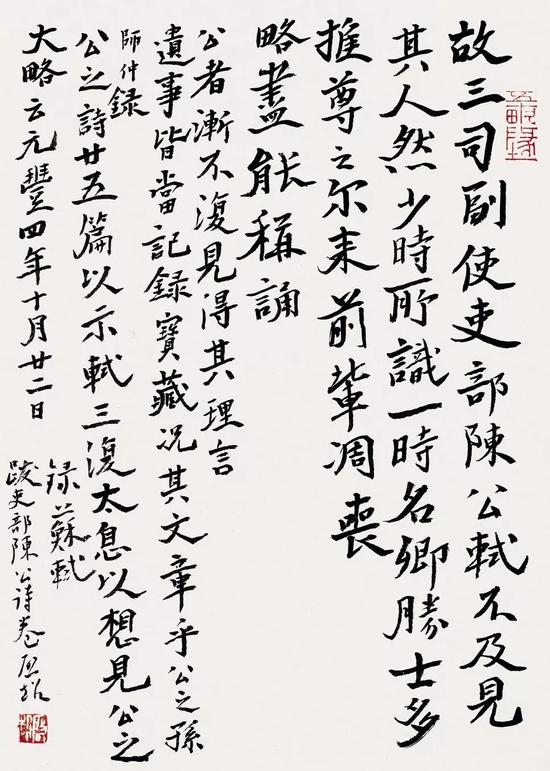 故三司副使吏部陳公軾不及見
其人然少時所識一時名卿勝士多
推尊之尔来前輩凋喪
略盡能稱誦
公者漸不復見得其理言
遺事皆當記録寶藏況其文章乎公之孫
師仲録
公之詩廿五篇以示軾三復太息以想見公之
大略云元豐四年十月廿二日
録蘇軾
跋吏部陳公詩卷